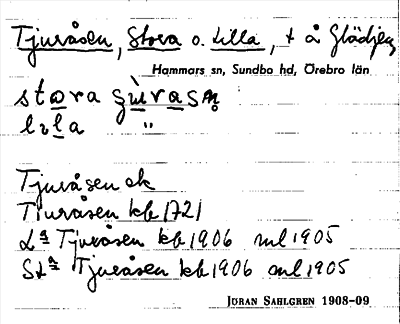 Tjuråsen, Stora o. Lilla, t å Glädjen
Hammars sn, Sundbo hd, Örebro län
stora şùrasn̥
lıla "
Tjuråsen ek
Tiuråsen kb 1721
La Tjuråsen kb 1906 ml 1905
Sta Tjuråsen kb 1906 ml 1905
JÖRAN SAHLGREN 1908-09